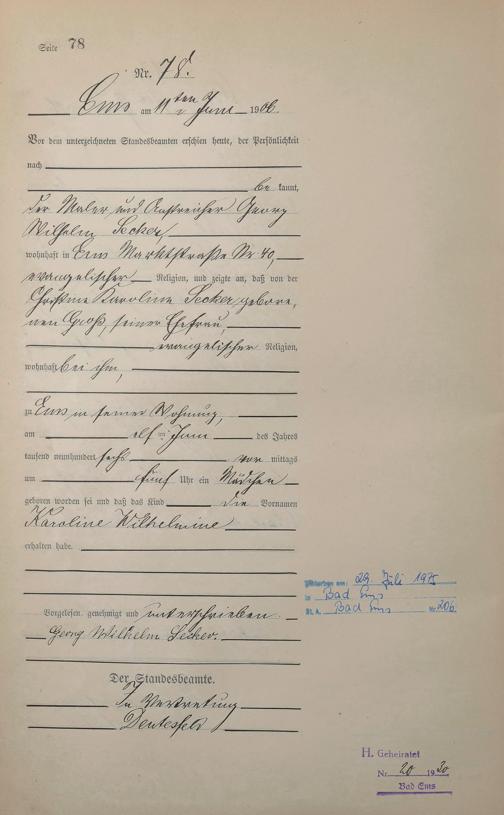 Seite 78
Nr. 78.
Ems am 11ten Juni 1906.
Vor dem unterzeichneten Standesbeamten erschien heute, der Persönlichkeit
nach
be kannt,
der Maler und Anstreicher Georg
Wilhelm
wohnhaft in Ems Marktstraße Nr 40,
evangelischer Religion, und zeigte an, daß von der
Christine Karoline gebore,
nen Groß, seiner Ehefrau,
evangelischer Religion,
wohnhaft bei ihm,
zu Ems in seiner Wohnung,
am elf ten Juni des Jahres
tausend neunhundert sechs vor mittags
um fünf Uhr ein Mädchen
geboren worden sei und daß das Kind die Vornamen
Karoline Wilhelmine
erhalten habe.
Vorgelesen, genehmigt und unterschrieben
Georg Wilhelm
Der Standesbeamte.
In Vertretung
Gestorben am: 29. Juli 1975
in Bad Ems
St. A. Bad Ems Nr. 206
H. Geheiratet
Nr. 20 1930
Bad Ems